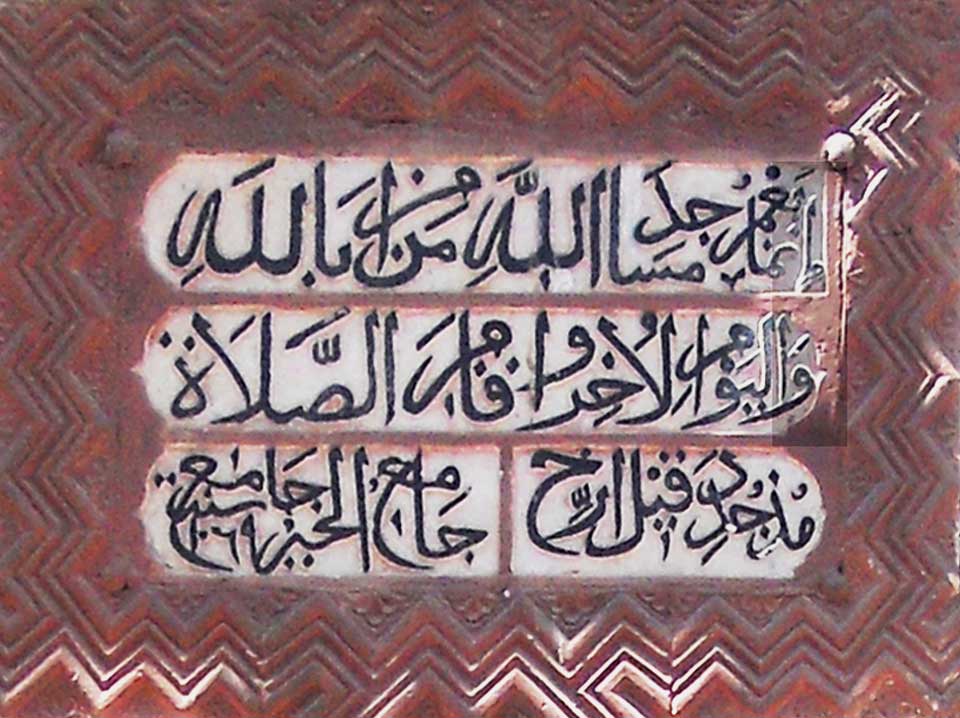 إنما يعمر مساجد الله من آمن بالله
واليوم الآخر وأقام الصلاة
مذ جدد قيل أرخ جامع الخير جامع سنة ١٠٦٩